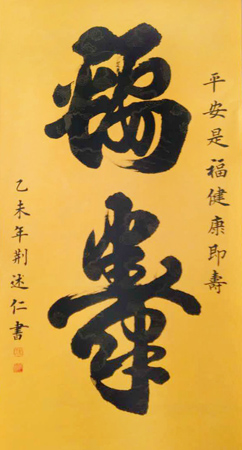 平安是福健康即壽
福壽
乙未年荆述仁書